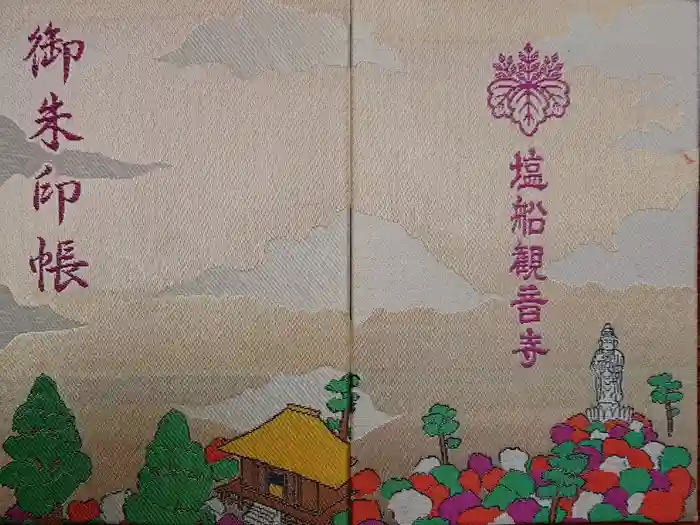 御朱印帳
塩船観音寺